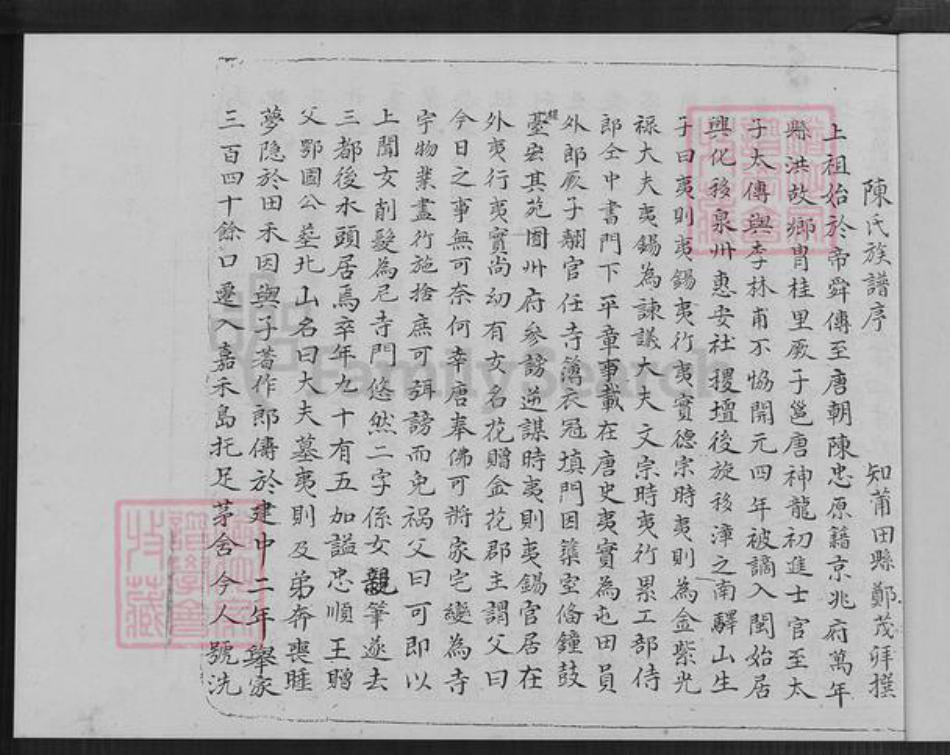 陳氏族譜序
知莆田縣鄭茂拜撰
上祖始於帝舜傳至唐朝陳忠原籍京兆府萬年
縣洪故鄉胄桂里厥子邕唐神龍初進士官至太
子太傅與李林甫不恊開元四年被謫入閩始居
興化移泉州惠安社稷壇後旋移漳之南驛山生
子曰夷則夷錫夷行夷實德宗時夷則為金紫光
祿大夫夷錫為諫議大夫文宗時夷行累工部侍
郎仝中書門下平章事載在唐史夷實為屯田員
外郎厥子翿官任寺簿衣冠填門因築室俻鐘鼓
臺宏其苑囿州府參謗逆謀時夷則夷錫官居在
外夷行夷實尚幼有女名花贈金花郡主謂父曰
今日之事無可奈何幸唐奉佛可將家宅變為寺
宇物業盡行施捨庶可弭謗而免禍父曰可即以
上聞女削髮為尼寺門悠然二字係女親筆遂去
三都後水頭居焉卒年九十有五加謚忠順王贈
父鄂國公塟北山名曰大夫墓夷則及弟奔喪睡
夢隐於田禾因與子著作郎儔於建中二年舉家
三百四十餘口遷入嘉禾島托足茅舍今人號洗
FamilySearch